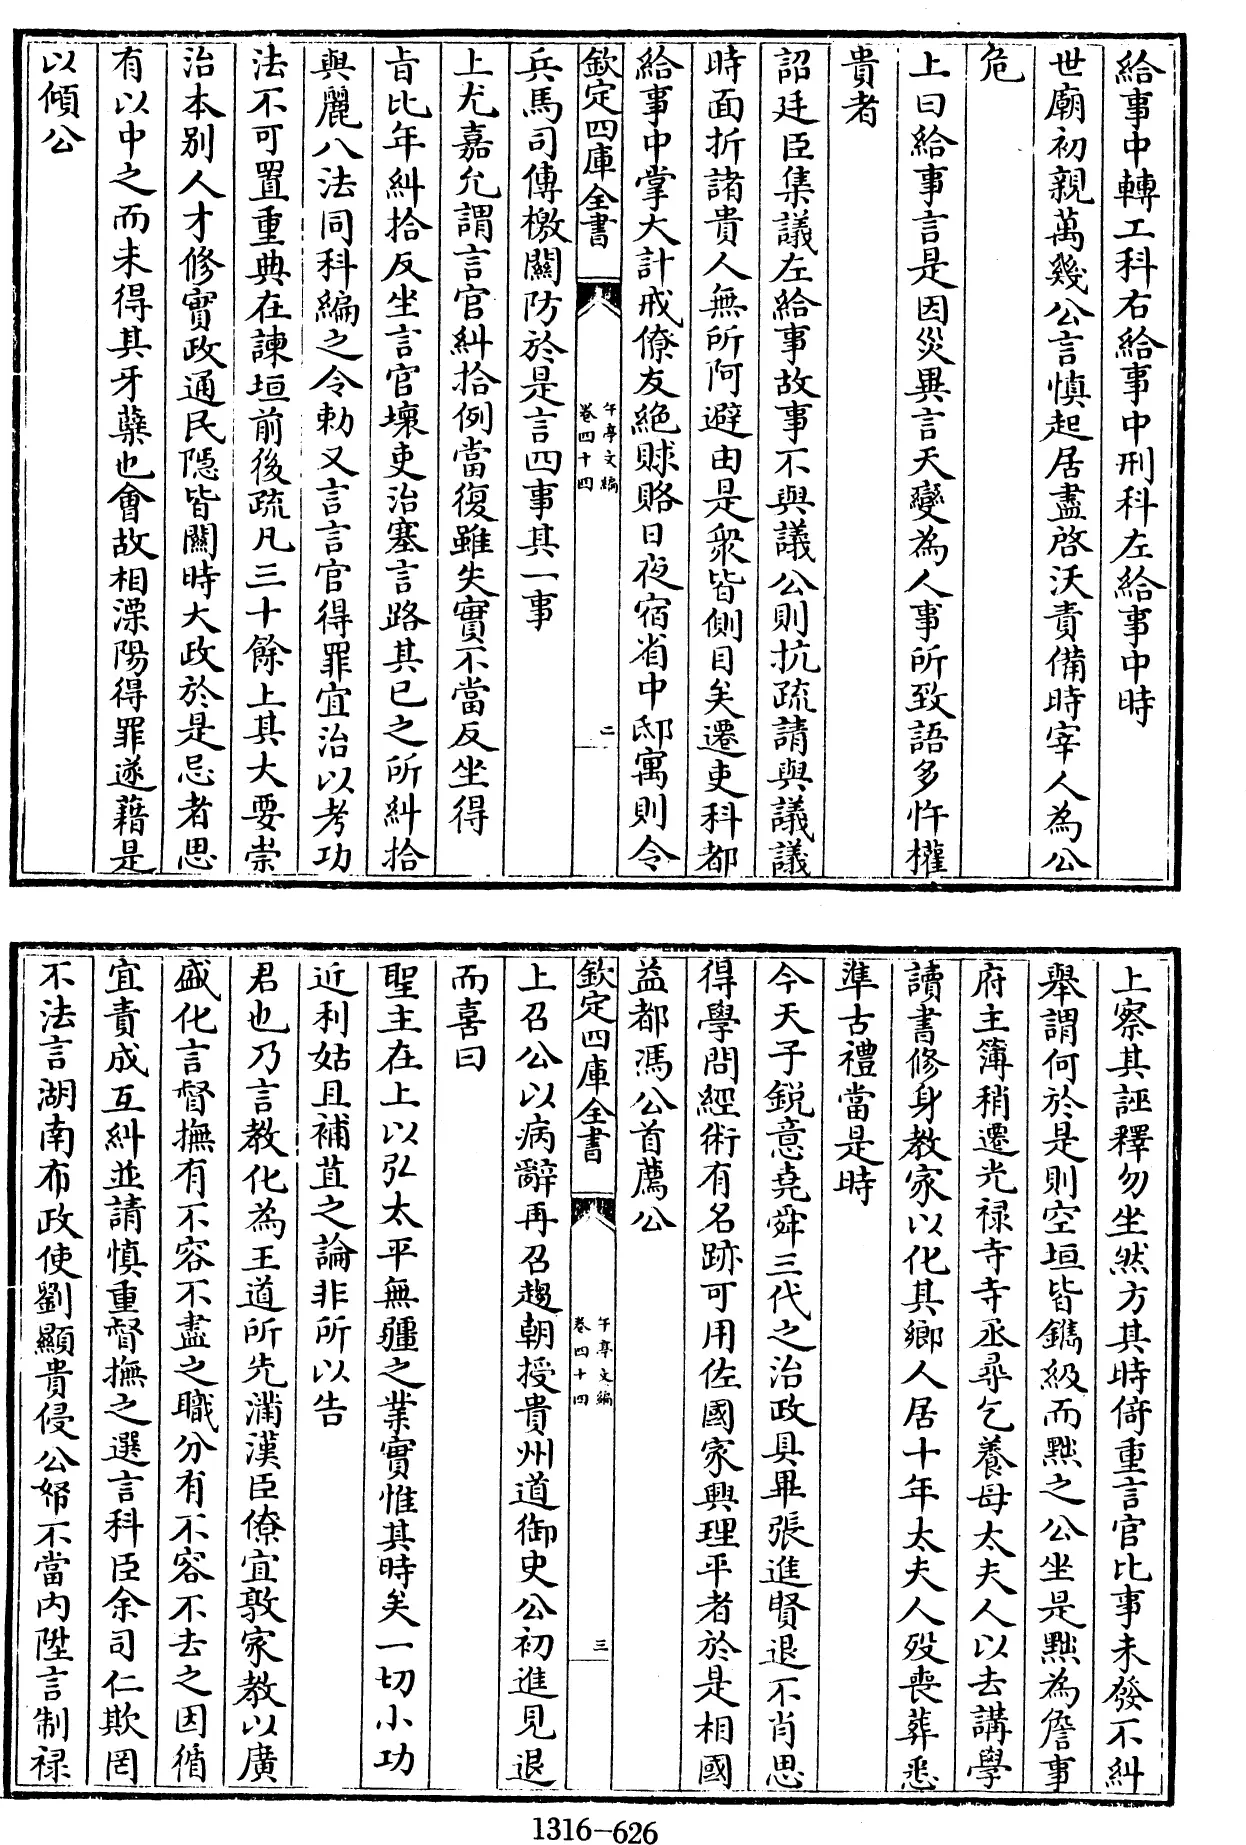 給事中轉工科右給事中刑科左給事中時
世廟初親萬幾公言慎起居盡啓沃責備時宰人為公
危
上曰給事言是因災異言天變為人事所致語多忤權
貴者
詔廷臣集議左給事故事不與議公則抗疏請與議議
時面折諸貴人無所阿避由是衆皆側目矣遷吏科都
給事中掌大計戒僚友絶賕賂日夜宿省中邸寓則令
欽定四庫全書
午亭文編
卷四十四
二
兵馬司傳檄關防於是言四事其一事
上尤嘉允謂言官糾拾例當復雖失實不當反坐得
旨比年糾拾反坐言官壞吏治塞言路其已之所糾拾
與麗八法同科編之令勅又言言官得罪宜治以考功
法不可置重典在諫垣前後疏凡三十餘上其大要崇
治本别人才修實政通民隱皆關時大政於是忌者思
有以中之而未得其牙蘖也會故相溧陽得罪遂藉是
以傾公
上察其誣釋勿坐然方其時倚重言官比事未發不糾
舉謂何於是則空垣皆鐫級而黜之公坐是黜為詹事
府主簿稍遷光禄寺寺丞尋乞養母太夫人以去講學
讀書修身教家以化其鄉人居十年太夫人殁喪葬悉
準古禮當是時
今天子鋭意堯舜三代之治政具畢張進賢退不肖思
得學問經術有名跡可用佐國家興理平者於是相國
益都馮公首薦公
欽定四庫全書
午亭文編
卷四十四
三
上召公以病辭再召趨朝授貴州道御史公初進見退
而喜曰
聖主在上以弘太平無疆之業實惟其時矣一切小功
近利姑且補苴之論非所以告
君也乃言教化為王道所先滿漢臣僚宜敦家教以廣
盛化言督撫有不容不盡之職分有不容不去之因循
宜責成互糾並請慎重督撫之選言科臣余司仁欺罔
不法言湖南布政使劉顯貴侵公帑不當内陞言制禄
1316-626